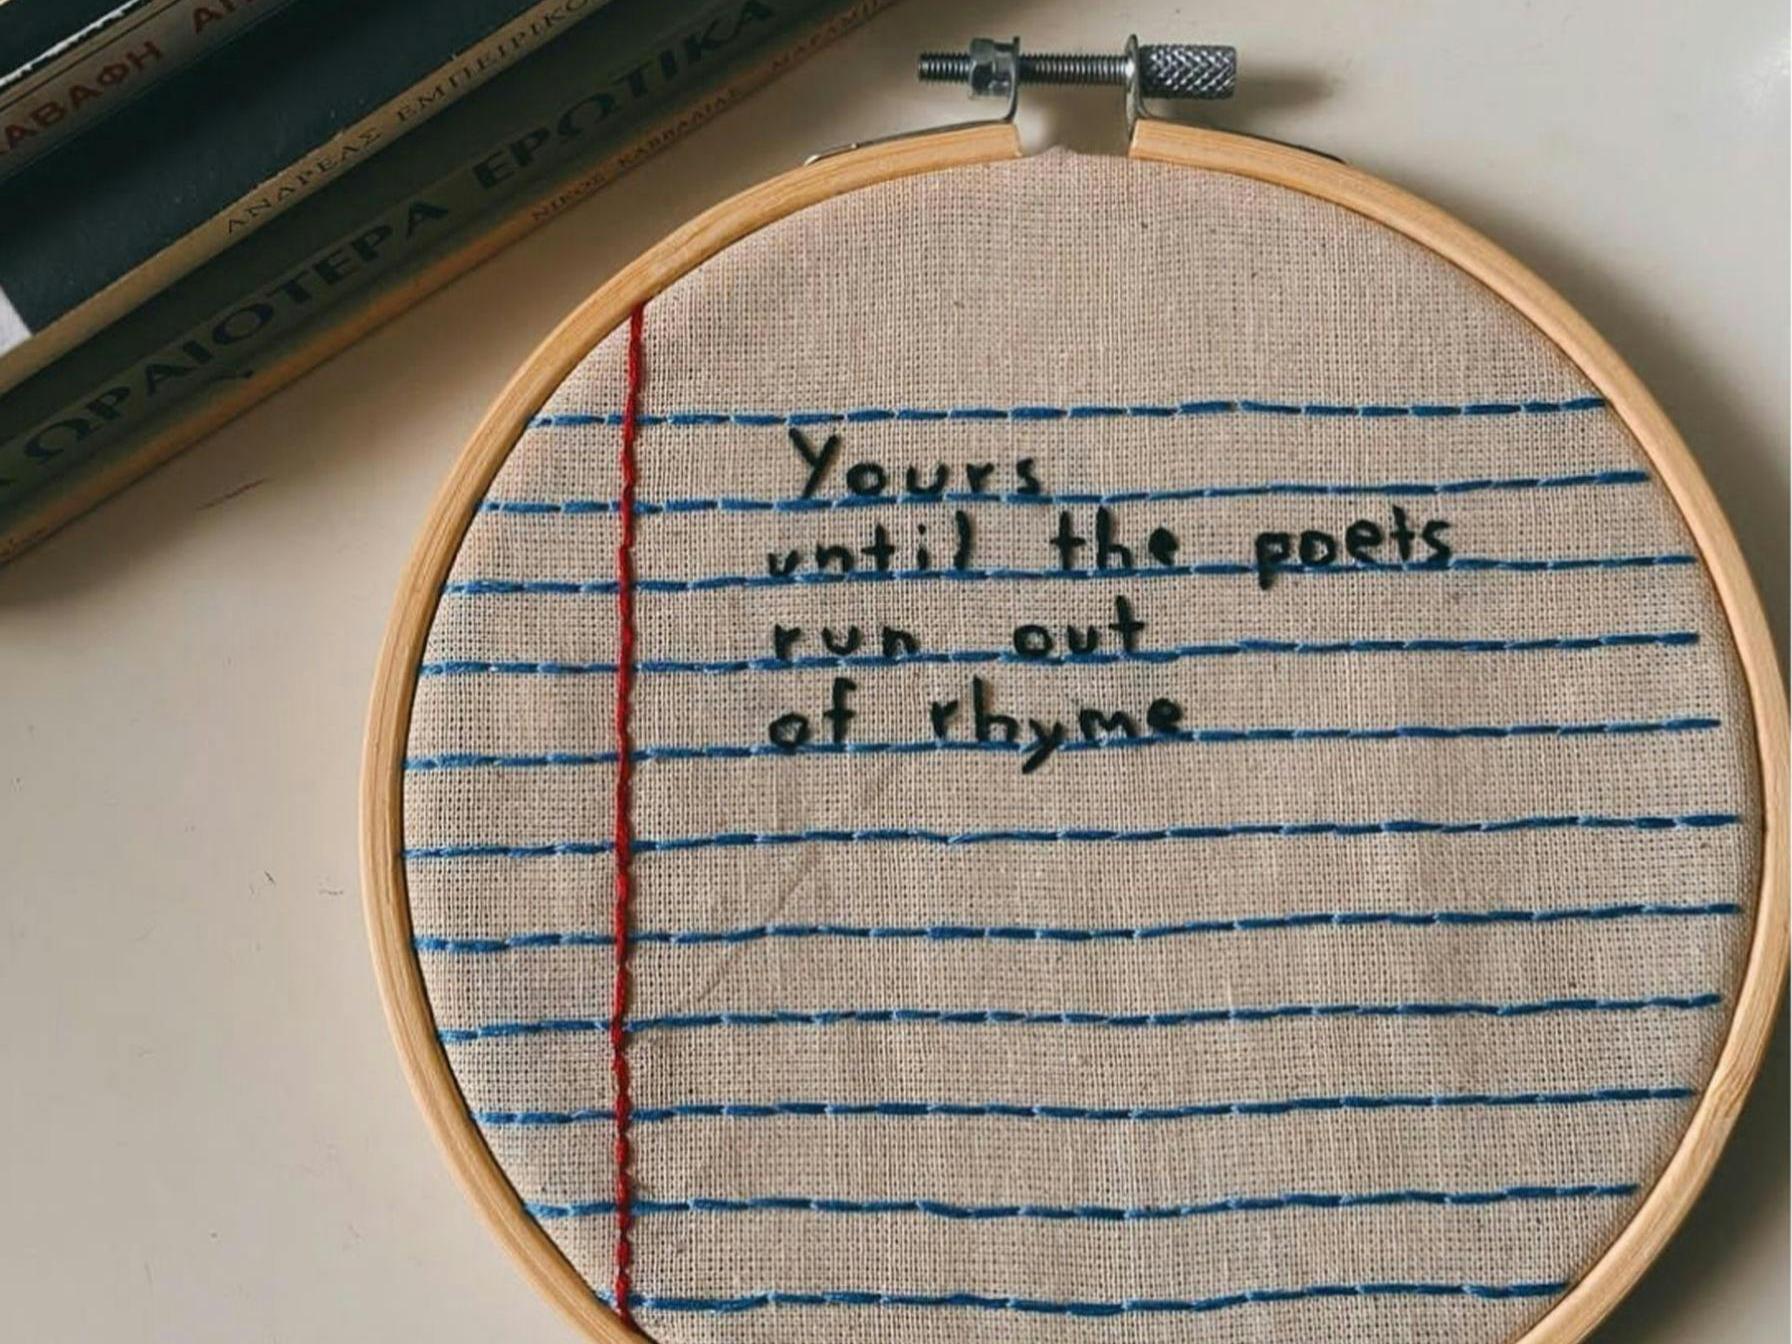 ΚΑΒΑΦΗ
ΑΝΔΡΕΑΣ ΕΜΠΕΙΡΙΚΟ
ΩΡΑΙΟΤΕΡΑ ΕΡΩΤΙΚΑ
ΝΙΚΟΣ ΚΑΒΒΑΔΙΑΣ
Yours
until the poets
run out
of rhyme